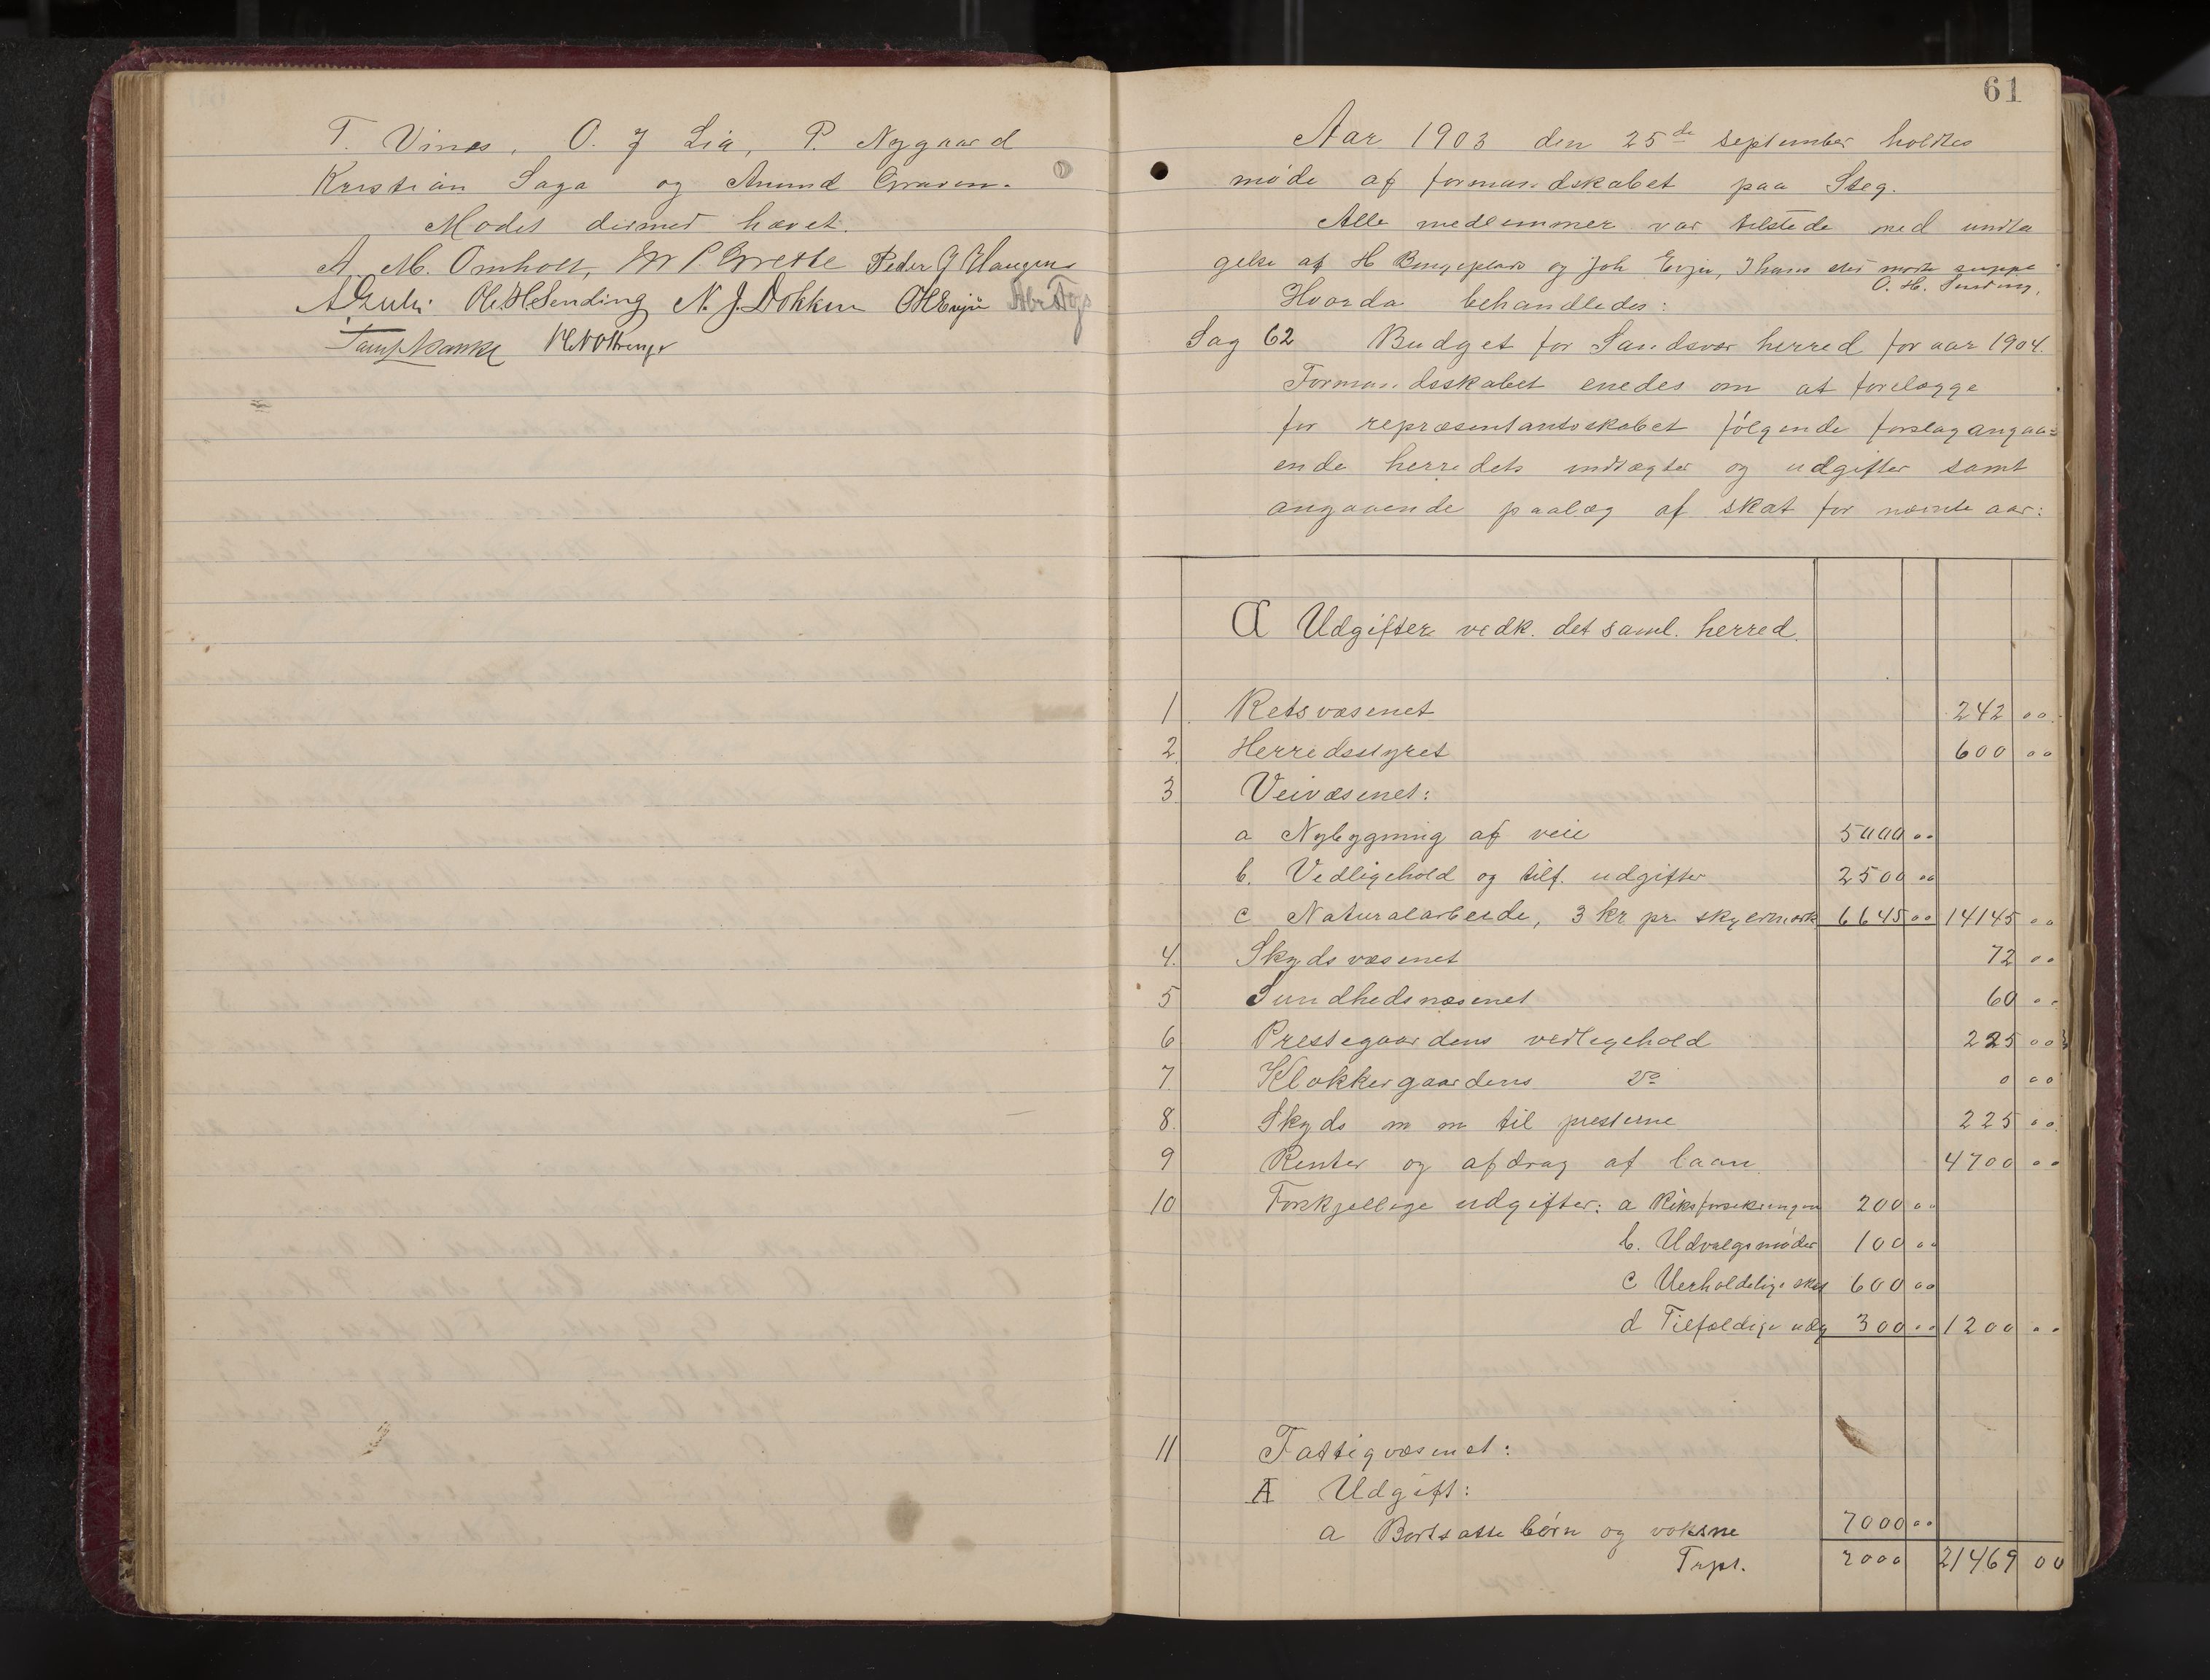 T. Vines, O. J Lia, P. Nygaard
Kristian Saga og Anund Graven.
Mødet dermed hævet.
A. M. Omholt, P. Grette Peder J Haugen
Ole H. Sending N. J. Dokken OHEvju
61
Aar 1903 den 25de september holdtes
møde af formandskabet paa Steg.
Alle medlemmer var tilstede med undta
gelse af H Bingeplass og Joh Evju, I hans sted mødte suppl
O. H. Sending.
Hvorda behandledes:
Sag 62 Budget for Sandsvær herred for aar 1904.
Formandsskabet enedes om at forelægge
for repræsentantskabet følgende forslag angaa=
ende herredets indtægter og udgifter samt
angaaende paalæg af skat for nævnte aar:
A Udgifter vedk. det saml. herred.
1 Retsvæsenet 242 00
2 Herredsstyret 600 00
3 Veivæsenet:
a Nybygning af veie 5000 00
b. Vedligehold og tilf. udgifter 2500 00
c Naturalarbeide, 3 kr pr skyldmark 6645 00 14145 00
4. Skydsvæsenet 72 00
5 Sundhedsvæsenet 60 00
6 Prestegaardens vedligehold 225 00
7. Klokkergaardens do 0 00
8. Skyds m m til presterne 225 00
9 Renter og afdrag af laan 4700 00
10 Forskjellige udgifter: a Riksforsikringen 200 00
b. Udvalgsmøder 100 00
c Uerholdelige skat 600 00
d Tilfældige udg 300 00 1200 00
11 Fattigvæsenet:
A Udgift:
a Bortsatte børn og voksne 7000 00
Trpt. 7000 21469 00